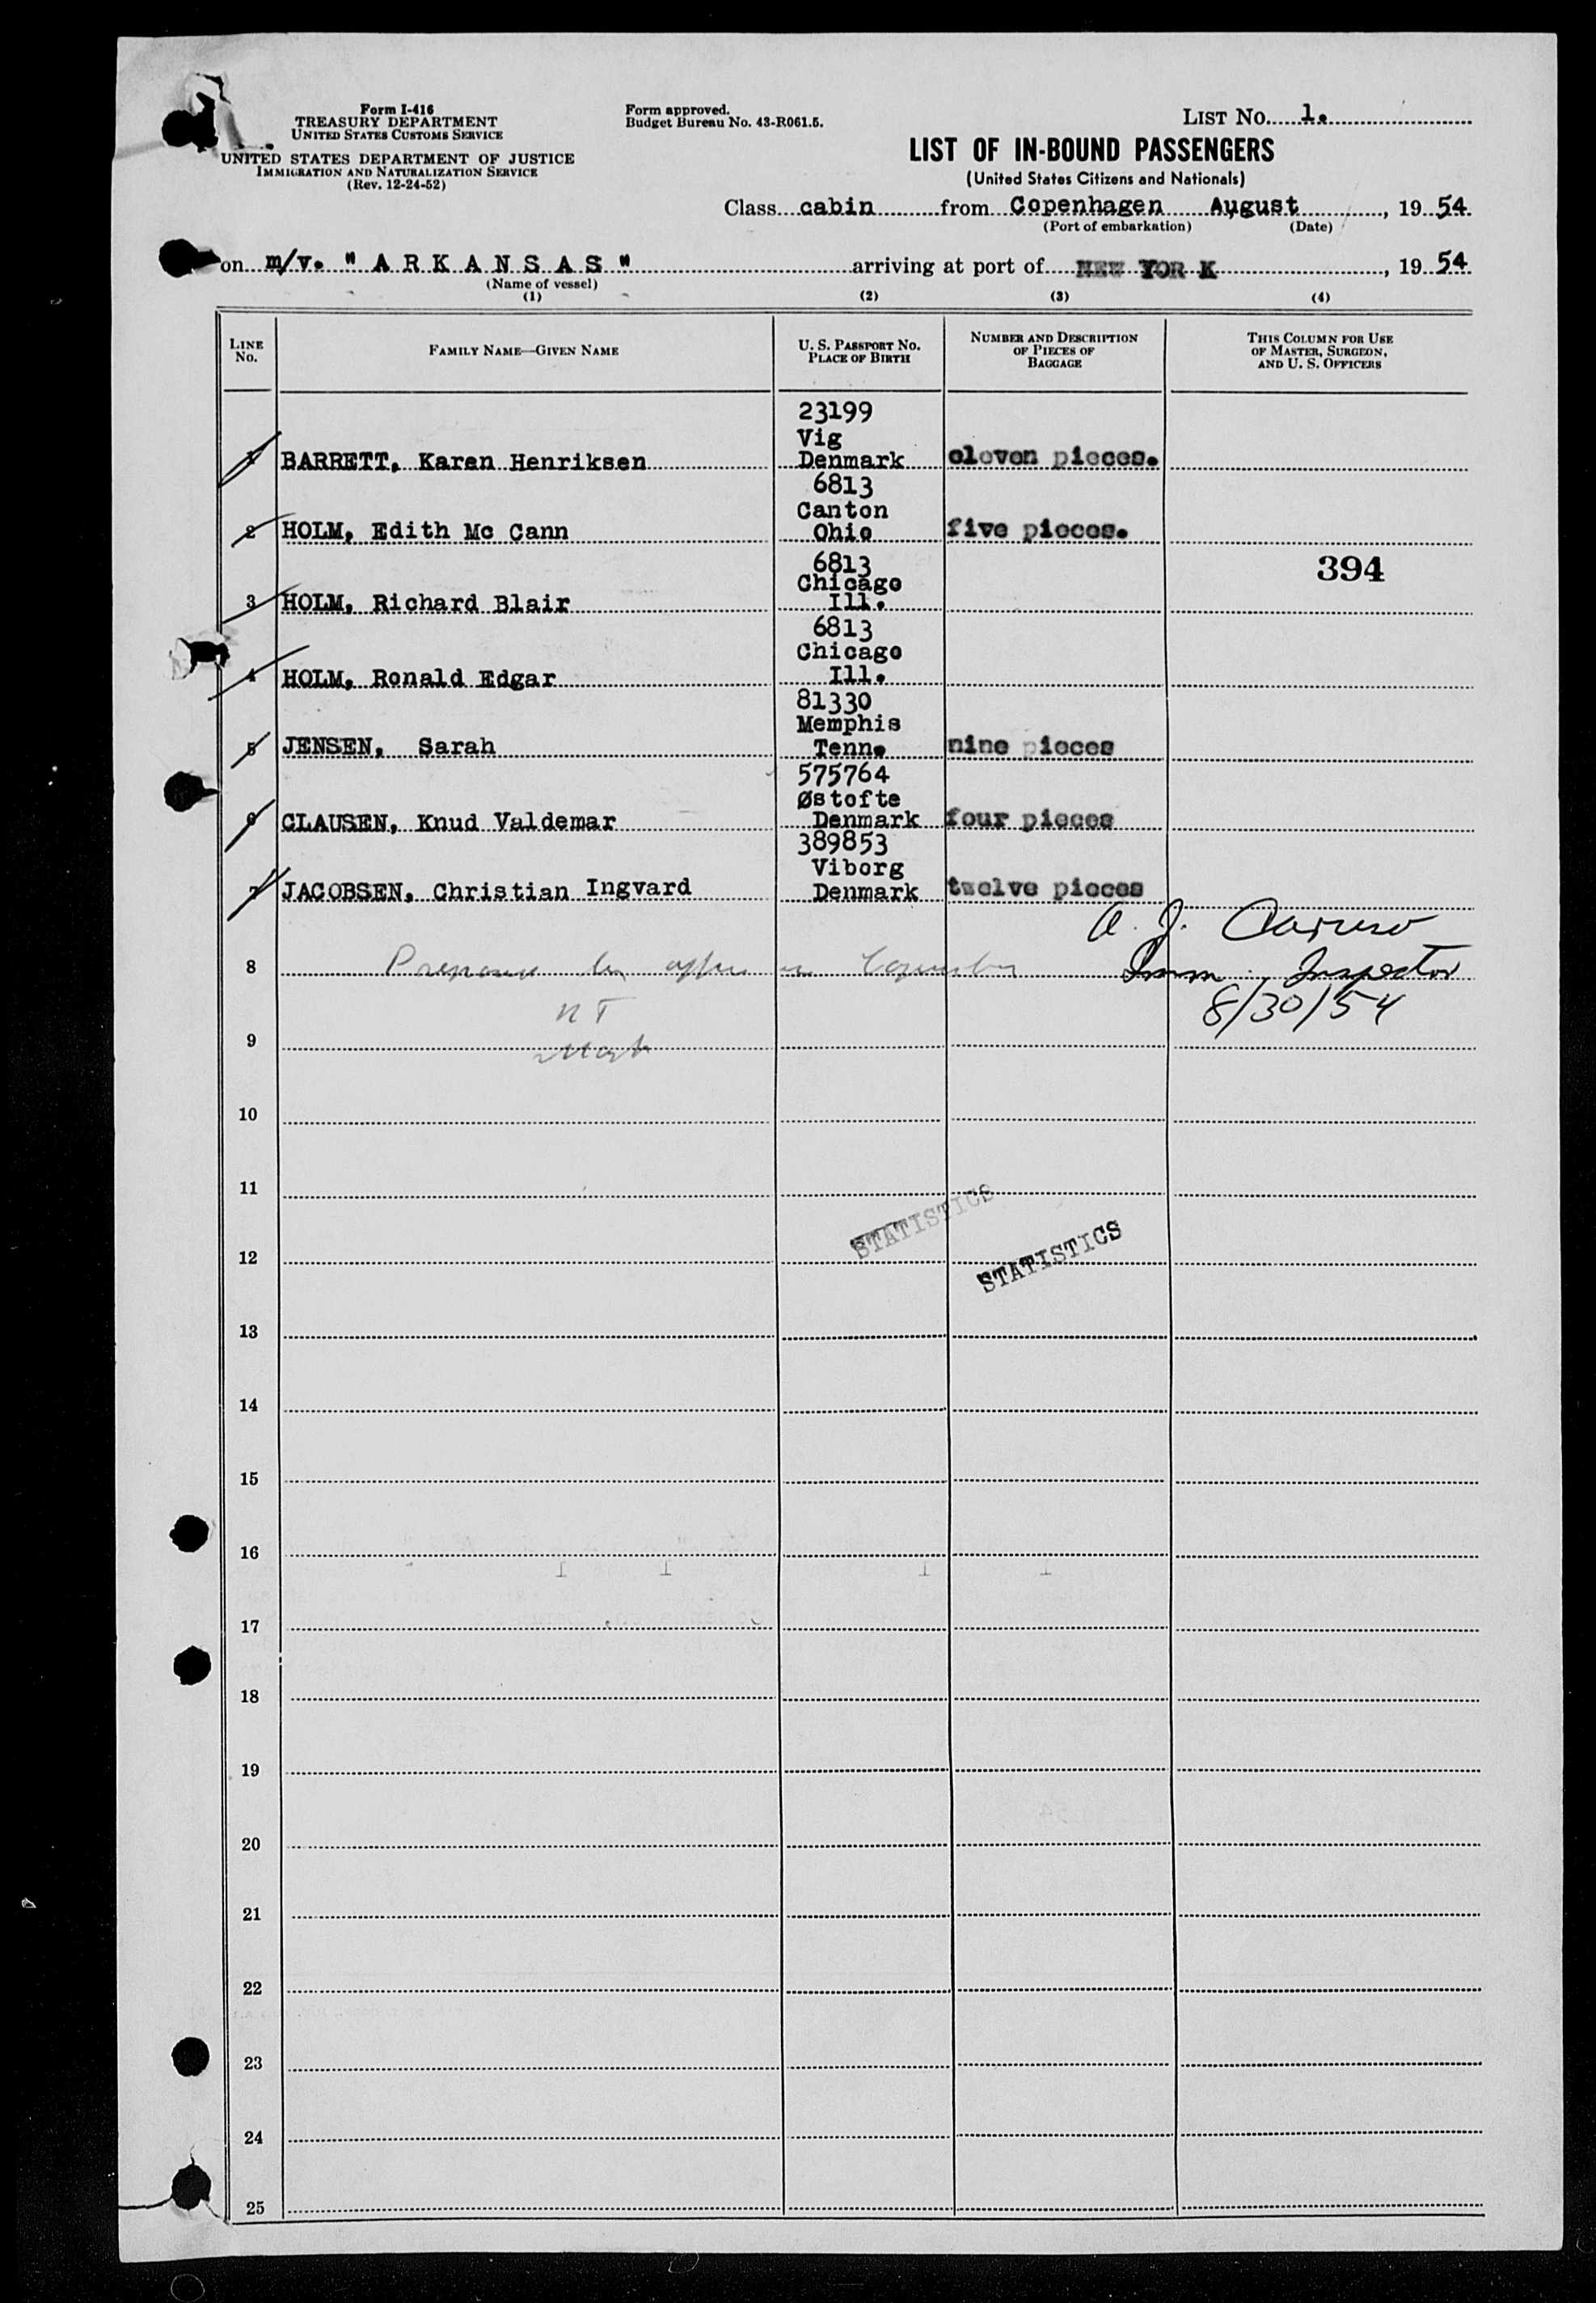 Form I-416
TREASURY DEPARTMENT
UNITED STATES CUSTOMS SERVICE
UNITED STATES DEPARTMENT OF JUSTICE
IMMIGRATION AND NATURALIZATION SERVICE
(Rev. 12-24-52)
Form approved.
Budget Bureau No. 43-R061.5.
LIST No. 1.
LIST OF IN-BOUND PASSENGERS
(United States Citizens and Nationals)
Class cabin from Copenhagen August, 19 54
(Port of embarkation) (Date)
on m/v. "ARKANSAS" arriving at port of NEW YORK, 19 54
(Name of vessel)
(1) (2) (3) (4)
LINE No.
FAMILY NAME—GIVEN NAME
U. S. PASSPORT No.
PLACE OF BIRTH
NUMBER AND DESCRIPTION
OF PIECES OF
BAGGAGE
THIS COLUMN FOR USE
OF MASTER, SURGEON,
AND U. S. OFFICERS
23199
Vig
1 BARRETT, Karen Henriksen Denmark eleven pieces.
6813
Canton
2 HOLM, Edith Mc Cann Ohio five pieces.
6813
394
Chicago
3 HOLM, Richard Blair Ill.
6813
Chicago
4 HOLM, Ronald Edgar Ill.
81330
Memphis
5 JENSEN, Sarah Tenn. nine pieces
575764
Østofte
6 CLAUSEN, Knud Valdemar Denmark four pieces
389853
Viborg
7 JACOBSEN, Christian Ingvard Denmark twelve pieces
A. J. Caruso
8 Imm. Inspector
8/30/54
9
10
11
STATISTICS
12
STATISTICS
13
14
15
16
17
18
19
20
21
22
23
24
25